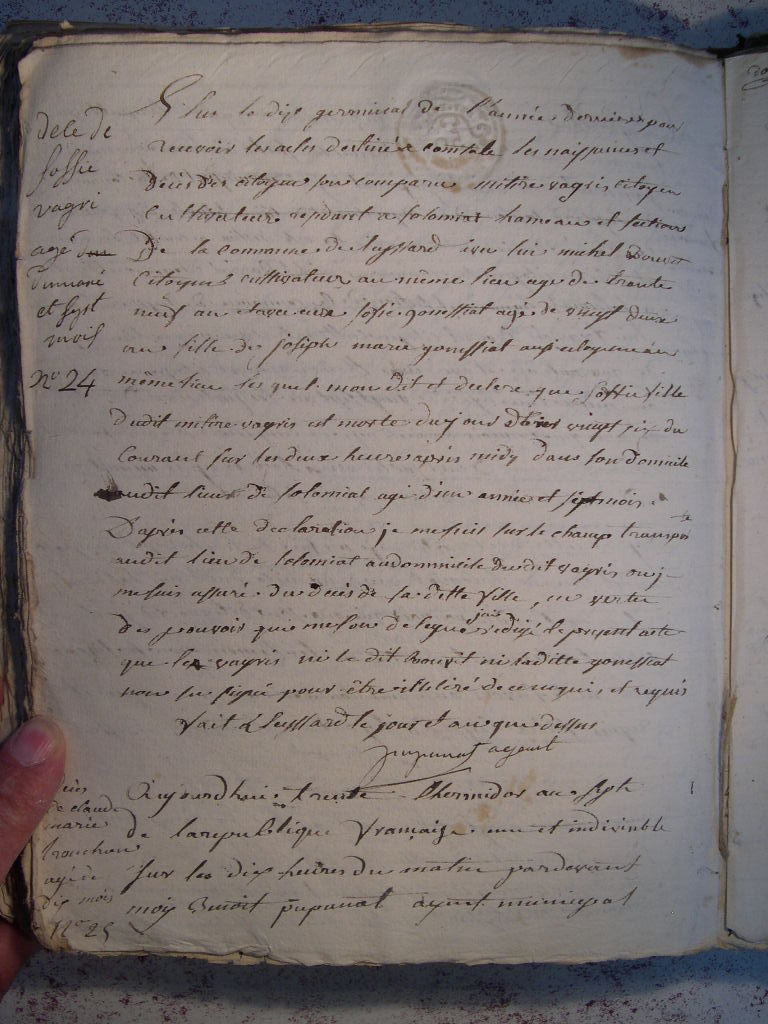 dele de
soffie
vagri
agé dun
dun ané
et sept
mois
No 24
Elus le dix germinal de l'année dernière pour
recevoir les actes destiné a constate les naissances et
Décès des citoyens son comparu mitire vagris citoyen
Cultivateur residant a solomiat hameau et sections
De la commune de Leyssard avec lui michel Bouvit
Citoyens cultivateur au même lieu age de trante
neuf an et avec eux sofie gonessiat agé de vingt deux
an fille de joseph marie gonessiat aussi citoyen au
même lieu les quel mon dit et declare que soffie fille
Dudit mitire vagris est morte dujour dhier vingt six du
Courant sur les deux heure après midy dans son domicile
audit lieu de solomiat agé d'un année et sept mois.
D'après cette declaration je me suis sur le champ transporté
audit lieu de solomiat au domicile du dit vagris ou j
me suis assuré du decès de sa ditte fille, en vertu
des pouvoir qui me son delegué jai redigé le present acte
que le vagris ni le dit Bouvit ni laditte gonessiat
non su signé pour être illiteré de ce requis et requis
fait a Leyssard le jour et an que dessus
pupunat agent
décès
de claude
marie
trouchon
agé de
dix mois
No 25
Aujourdhui trente thermidor an sept
de la republique françaize une et indivisible
sur les dix heures du matin pardevant
moy Benoit pupunat agent municipal